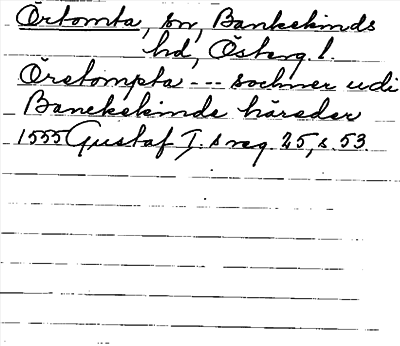 Örtomta, sn, Bankekinds
hd, Österg. l.
Öretompta --- sochner udi
Banckekinde häreder
1555 Gustaf I:s reg. 25, s. 53.